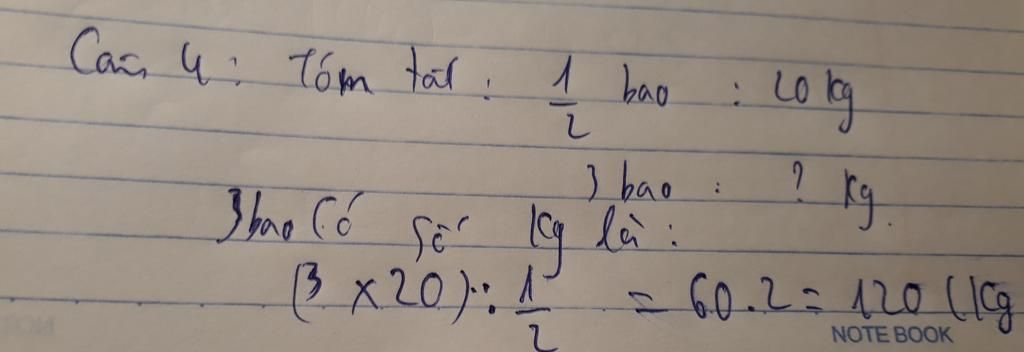 Câu 4: Tóm tắt: 1/2 bao : 20 kg
3 bao : ? kg.
3 bao có số kg là:
(3 x 20) : 1/2 = 60.2 = 120 (kg
NOTE BOOK